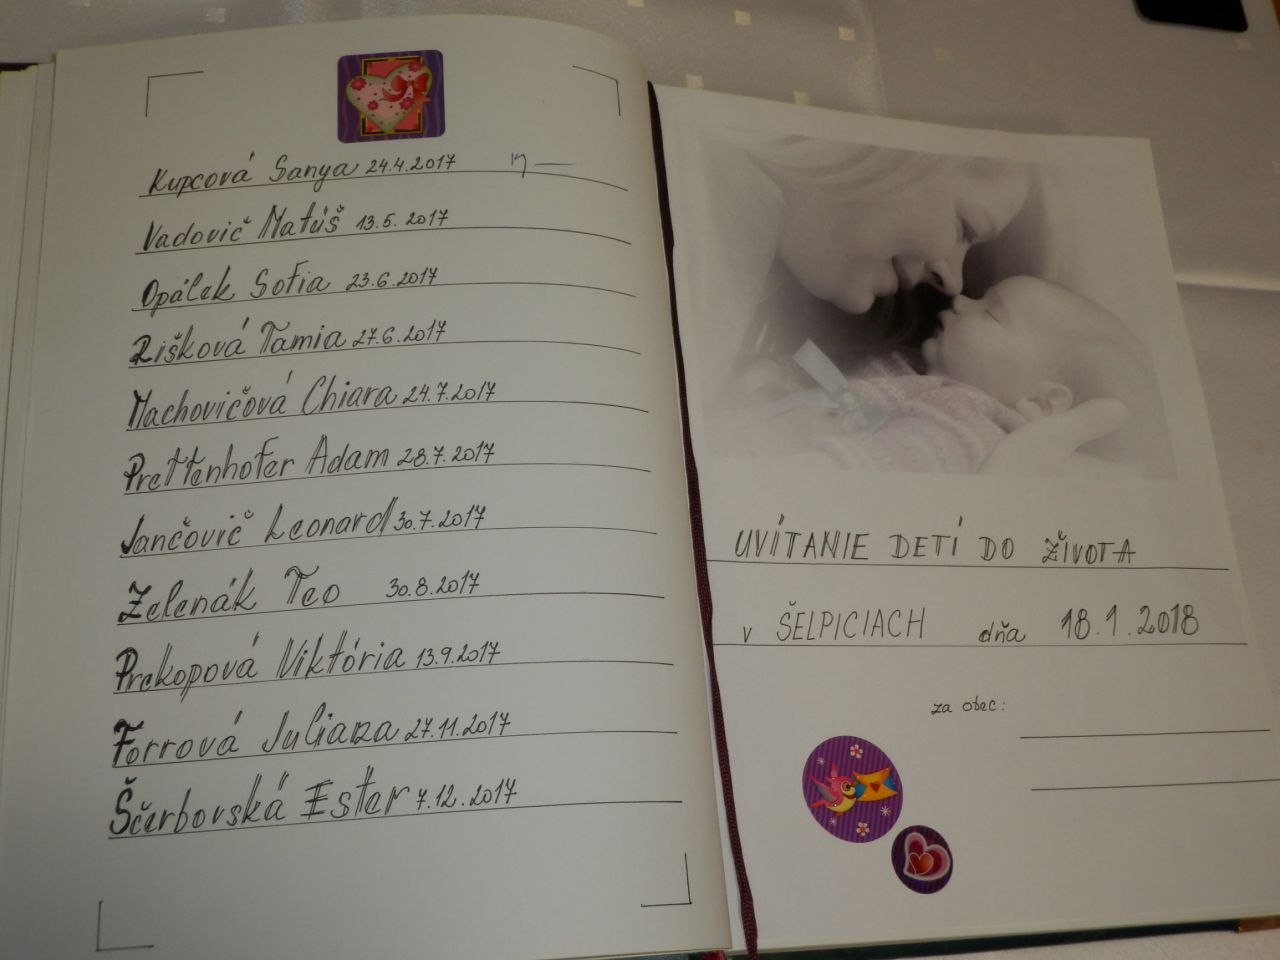 Kupcová Sanya 24.4.2017
Vadovič Matúš 13.5.2017
Opálek Sofia 23.6.2017
Rišková Tamia 27.6.2017
Machovičová Chiara 24.7.2017
Prettenhofer Adam 28.7.2017
Jančovič Leonard 30.7.2017
Zelenák Teo 30.8.2017
Prekopová Viktória 13.9.2017
Forrová Juliana 27.11.2017
Ščerbovská Ester 7.12.2017
UVÍTANIE DETÍ DO ŽIVOTA
v ŠELPICIACH dňa 18.1.2018
za obec: